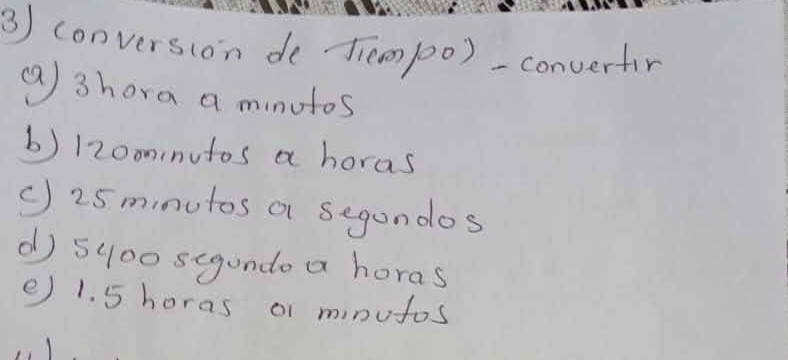 3) conversión de Tiempo) - convertir
a) 3 hora a minutos
b) 120 minutos a horas
c) 25 minutos a segundos
d) 5400 segundo a horas
e) 1.5 horas a minutos